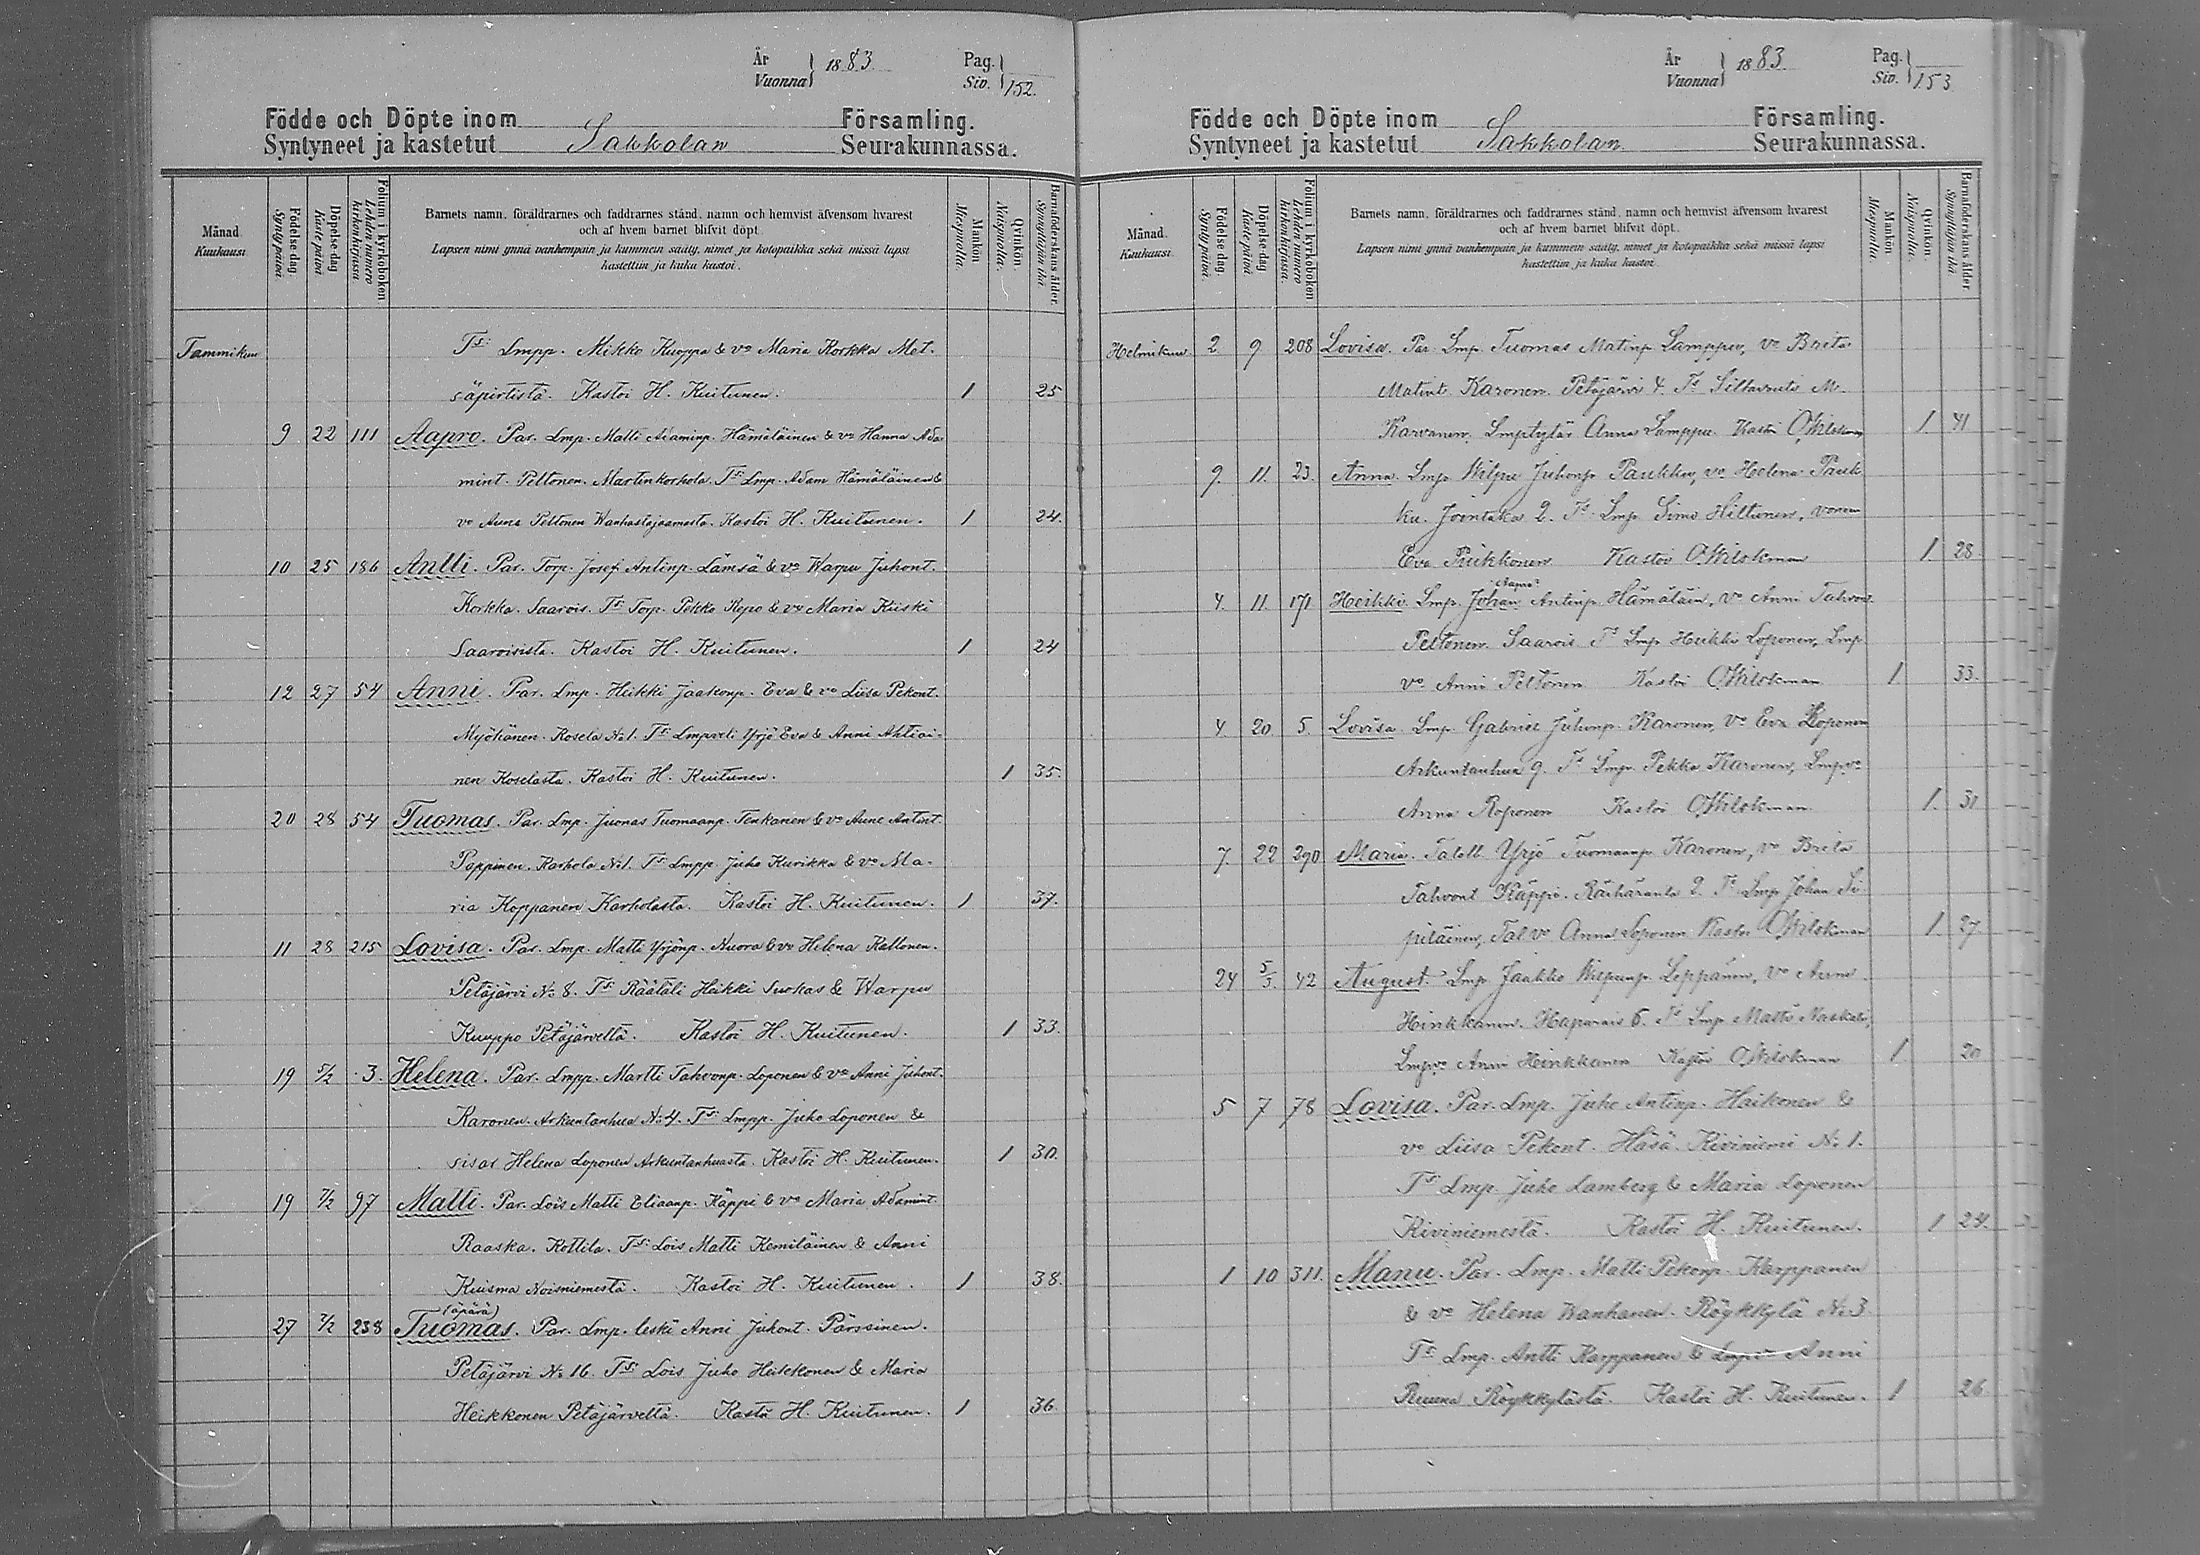 År Vuonna } 1883. Pag. Siv. } 152.
Födde och Döpte inom Församling.
Syntyneet ja kastetut Sakkolan Seurakunnassa.
Månad Kuukausi
Födelsedag Syntypäivä.
Döpelsedag Kastepäivä
Folium i kyrkoboken Lehden numero kirkonkirjassa.
Barnets namn, föräldrarnes och faddrarnes stånd, namn och hemvist äfvensom hvarest
och af hvem barnet blifvit döpt.
Lapsen nimi ynnä vanhempain ja kummein sääty, nimet ja kotopaikka sekä missä lapsi
kastettiin ja kuka kastoi.
Mankön Miespuolta.
Qvinkön. Naispuolta.
Barnaföderskans ålder. Synnyttäjän ikä.
Tammikuu Ts: Lmpp. Mikko Kuoppa & vo Maria Korkka Met-
säpirtistä. Kastoi H. Kuitunen. 1 25
9 22 111 Aapro. Par. Lmp. Matti Adaminp. Hämäläinen & vo Hanna Ada-
mint. Peltonen. Martinkorhola. Ts: Lmp. Adam Hämäläinen &
vo Anna Peltonen Wanhastajaamasta. Kastoi H. Kuitunen. 1 24.
10 25 186 Antti. Par. Torp. Josef Antinp. Lämsä & vo Warpu Juhont.
Korkka. Saarois. Ts: Torp. Pekka Repo & vo Maria Kiiski
Saaroisista. Kastoi H. Kuitunen. 1 24
12 27 54 Anni. Par. Lmp. Heikki Jaakonp. Eva & vo Liisa Pekont.
Myöhänen. Kosela No1. Ts: Lmpveli Yrjö Eva & Anni Ahtiai-
nen Koselasta. Kastoi H. Kuitunen. 1 35.
20 28 54 Tuomas. Par. Lmp. Juonas Tuomaanp. Tenkanen & vo Anne Antint.
Poppinen. Karhola No1. Ts: Lmpp. Juho Kurikka & vo Ma-
ria Koppanen Karholasta. Kastoi H. Kuitunen. 1 37.
11 28 215 Lovisa. Par. Lmp. Matti Yrjönp. Nuora & vo Helena Kattonen.
Petäjärvi No 8. Ts: Räätäli Heikki Suokas & Warpu
Kuuppo Petäjärveltä. Kastoi H. Kuitunen. 1 33.
19 5/2 3. Helena. Par. Lmpp. Martti Tahvonp. Loponen & vo Anni Juhont.
Karonen. Arkuntanhua No 4. Ts: Lmpp. Juho Loponen &
sisar Helena Loponen Arkuntanhuasta. Kastoi H. Kuitunen. 1 30.
19 7/2 97 Matti. Par. Lois Matti Eliaanp. Käppi & vo Maria Adamint.
Raaska. Kottila. Ts: Lois Matti Kemiläinen & Anni
Kuisma Noisniemestä. Kastoi H. Kuitunen. 1 38.
(äpärä)
27 7/2 238 Tuomas. Par. Lmp. leski Anni Juhont. Pärssinen.
Petäjärvi No 16. Ts: Lois Juho Heikkonen & Maria
Heikkonen Petäjärveltä. Kastoi H. Kuitunen. 1 36.
År Vuonna } 1883. Pag. Siv. } 153
Födde och Döpte inom Församling.
Syntyneet ja kastetut Sakkolan Seurakunnassa.
Månad. Kuukausi.
Födelsedag Syntypäivä.
Döpelsedag Kastepäivä
Folium i kyrkoboken Lehden numero kirkonkirjassa.
Barnets namn, föräldrarnes och faddrarnes stånd, namn och hemvist äfvensom hvarest
och af hvem barnet blifvit döpt.
Lapsen nimi ynnä vanhempain ja kummein sääty, nimet ja kotopaikka sekä missä lapsi
kastettiin ja kuka kastoi.
Mankön Miespuolta.
Qvinkön. Naispuolta.
Barnaföderskans ålder. Synnyttäjän ikä.
Helmikuu 2 9 208 Lovisa. Par. Lmp. Tuomas Matinp. Lamppu, vo Brita
Matint. Karonen. Petäjärvi 4. Ts M.
Karvanen, Lmptytär Anna Lamppu. Kastoi 1. 41
9. 11. 23. Anna. Lmp. Wilpu Juhonp. Paukku, vo Helena Pauk-
ku. Joentaka 2. Ts Lmp. Simo Hiltunen,
Eva Piikkonen Kastoi 1. 28.
Aapro
4. 11. 171 Heikki. Lmp. Johan Antinp. Hämäläin, vo Anni Tahvont.
Peltonen. Saarois Ts Lmp. Heikki Loponen, Lmp
vo Anni Peltonen Kastoi 1. 33.
4. 20 5. Lovisa. Lmp. Gabriel Juhonp. Karonen, vo Eva Loponen
Arkuntanhua 9. Ts Lmp. Pekka Karonen, Lmp.vo
Anna Roponen Kastoi 1. 31
7. 22 290 Maria. Taloll. Yrjö Tuomaanp. Karonen, vo Brita
Tahvont. Käppi. Räihäranta 2. Ts Lmp. Johan Si-
piläinen, Tal vo Anna Loponen Kastoi 1. 27.
24 5/3. 42 August. Lmp. Jaakko Wilpunp. Leppänen, vo Anna
Hinkkanen. Haparais 6. Ts Lmp. Matts Naskali,
Lmp.vo Anni Hinkkanen Kastoi 1. 20
5 7 78 Lovisa. Par. Lmp. Juho Antinp. Haikonen &
vo Liisa Pekont. Häsä. Kiviniemi No 1.
Ts: Lmp. Juho Lamberg & Maria Loponen
Kiviniemestä. Kastoi H. Kuitunen. 1 24.
1 10 311. Manu. Par. Lmp. Matti Pekonp. Karppanen
& vo Helena Wanhanen. Röykkylä No 3
Ts: Lmp. Antti Karppanen & Anni
Ruuna Röykkylästä. Kastoi H. Kuitunen. 1 26.